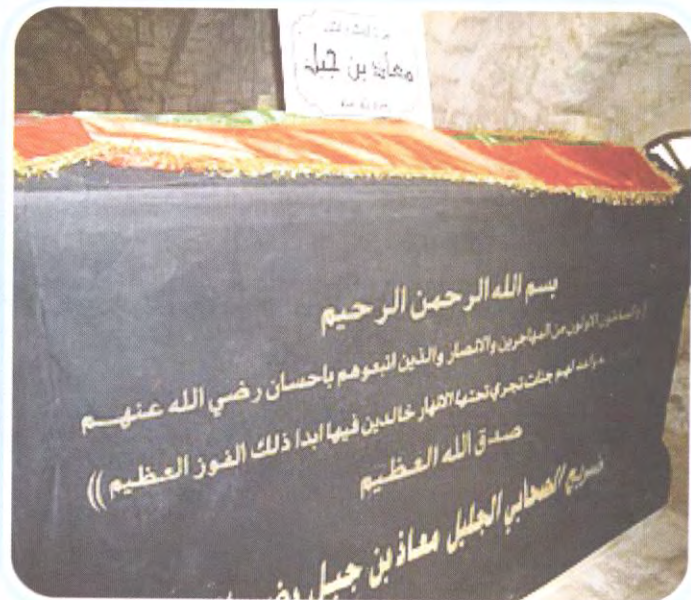 معاذ بن جبل
بسم الله الرحمن الرحيم
والسابقون الاولون من المهاجرين والانصار والذين اتبعوهم باحسان رضي الله عنهم
واعد لهم جنات تجري تحتها الانهار خالدين فيها ابدا ذلك الفوز العظيم ))
صدق الله العظيم
ضريح الصحابي الجليل معاذ بن جبل